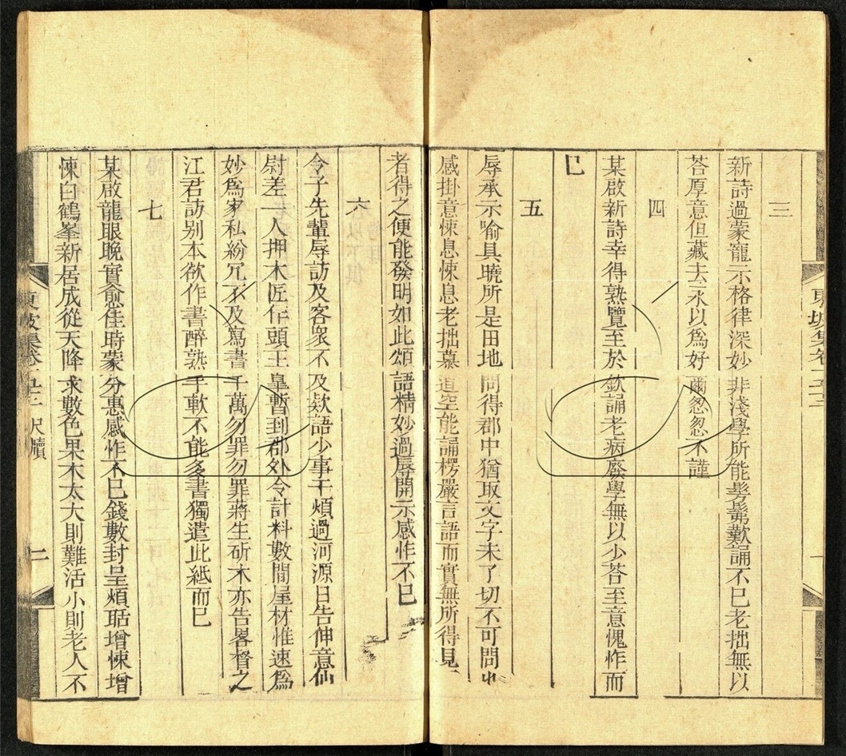 三
新詩過蒙寵示格律深妙非淺學所能髣髴歎誦不已老拙無以
荅厚意但藏去永以為好爾忽忽不謹
四
某啟新詩幸得熟覽至於欽誦老病廢學無以少荅至意愧怍而
已
五
辱承示喻具曉所是田地問得郡中猶取文字未了切不可問也
感掛意悚息悚息老拙慕道空能誦楞嚴言語而實無所得見
者得之便能發明如此頌語精妙過辱開示感怍不已
六
令子先輩辱訪及客眾不及欵語少事干煩過河源日告伸意仙
尉差一人押木匠作頭王皐暫到郡外令計料數間屋材惟速為
妙為家私紛冗不及寫書千萬勿罪勿罪蔣生斫木亦告畧督之
江君訪別本欲作書醉熟手軟不能多書獨遣此紙而已
七
某啟龍眼晚實愈佳時蒙分惠感怍不已錢數封呈煩聒增悚增
悚白鶴峯新居成從天降求數色果木太大則難活小則老人不
東坡集卷
尺牘
二